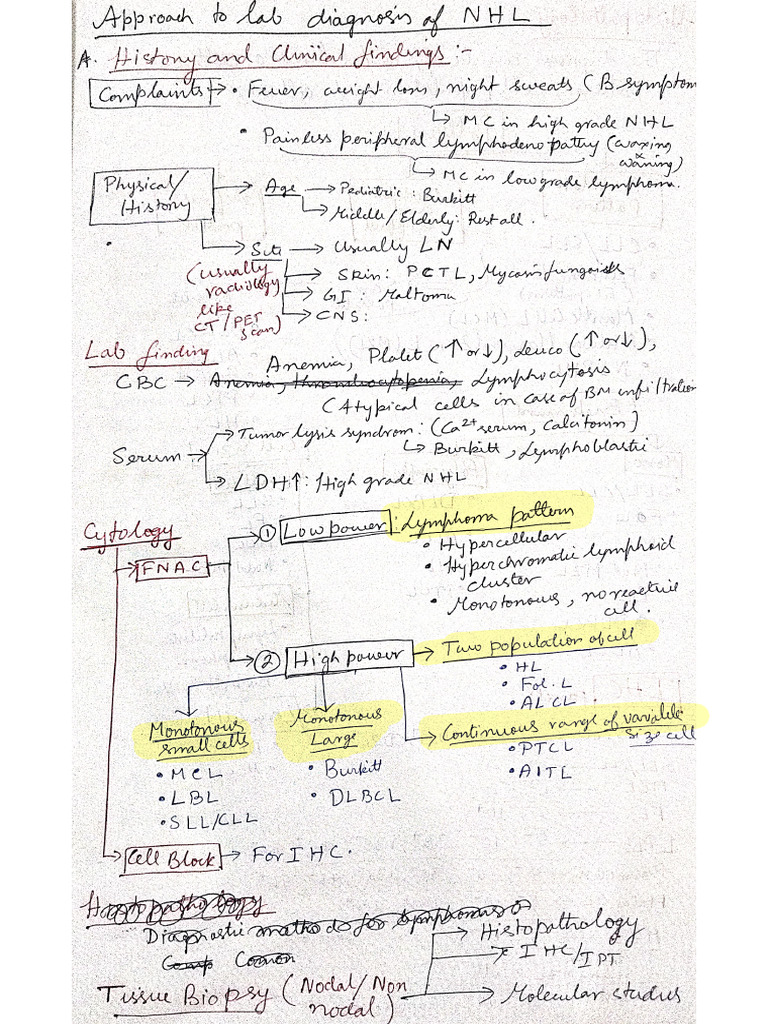 Approach to lab diagnosis of NHL
A. History and Clinical findings :-
Complaints → • Fever, weight loss, night sweats (B symptom
↳ MC in high grade NHL
• Painless peripheral lymphadenopathy (waxing
waning)
↳ MC in low grade lymphoma.
Physical/
History
→ Age → Pediatric : Burkitt
→ Middle/Elderly: Rest all.
→ Site → Usually LN
(usually
radiology
like
CT/PET
scan)
→ Skin: PCTL, Mycosis fungoides
→ GI : Maltoma
→ CNS:
Lab finding
Anemia, Platlet (↑ or ↓), Leuco (↑ or ↓),
CBC → Anemia, thrombocytopenia, Lymphocytosis
(Atypical cells in case of BM infiltration
Serum → Tumor lysis syndrom: (Ca2+ serum, Calcitonin)
↳ Burkitt, Lymphoblastic
→ LDH↑ : High grade NHL
Cytology
→ FNAC
① Low power : Lymphoma pattern
• Hypercellular
• Hyperchromatic lymphoid
cluster
• Monotonous, no reactive
cell.
② High power → Two population of cell
• HL
• Fol. L
• ALCL
Monotonous
small cells
• MCL
• LBL
• SLL/CLL
Monotonous
Large
• Burkitt
• DLBCL
→ Continuous range of variable
size cell
• PTCL
• AITL
→ Cell Block → For IHC.
Histopathology
Diagnostic methods for lymphomas
Tissue Biopsy (Nodal/Non
nodal)
→ Histopathology
→ IHC/IPT
→ Molecular studies